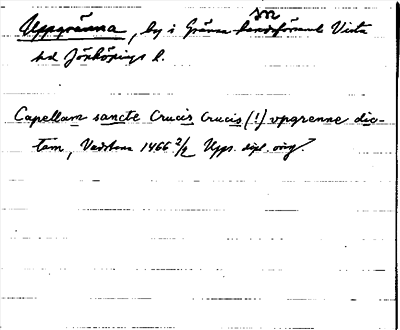 Uppgränna, by i Gränna sn Vista
hd Jönköpings l.
Capellam sancte Crucis Crucis (!) vpgrenne dic-
tam, Vadstena 1466 2/2 Upps. dipl. orig.